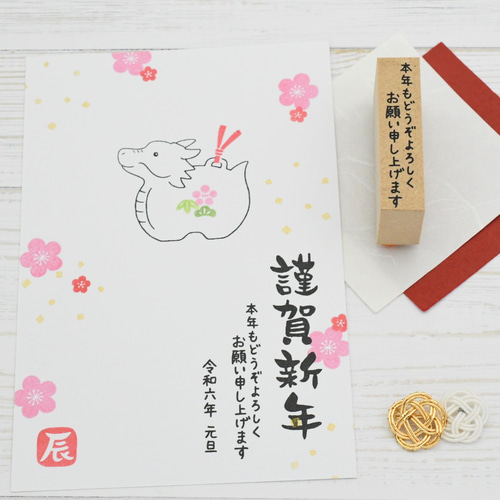 謹賀新年
本年もどうぞよろしく
お願い申し上げます
令和六年 元旦
辰
本年もどうぞよろしく
お願い申し上げます